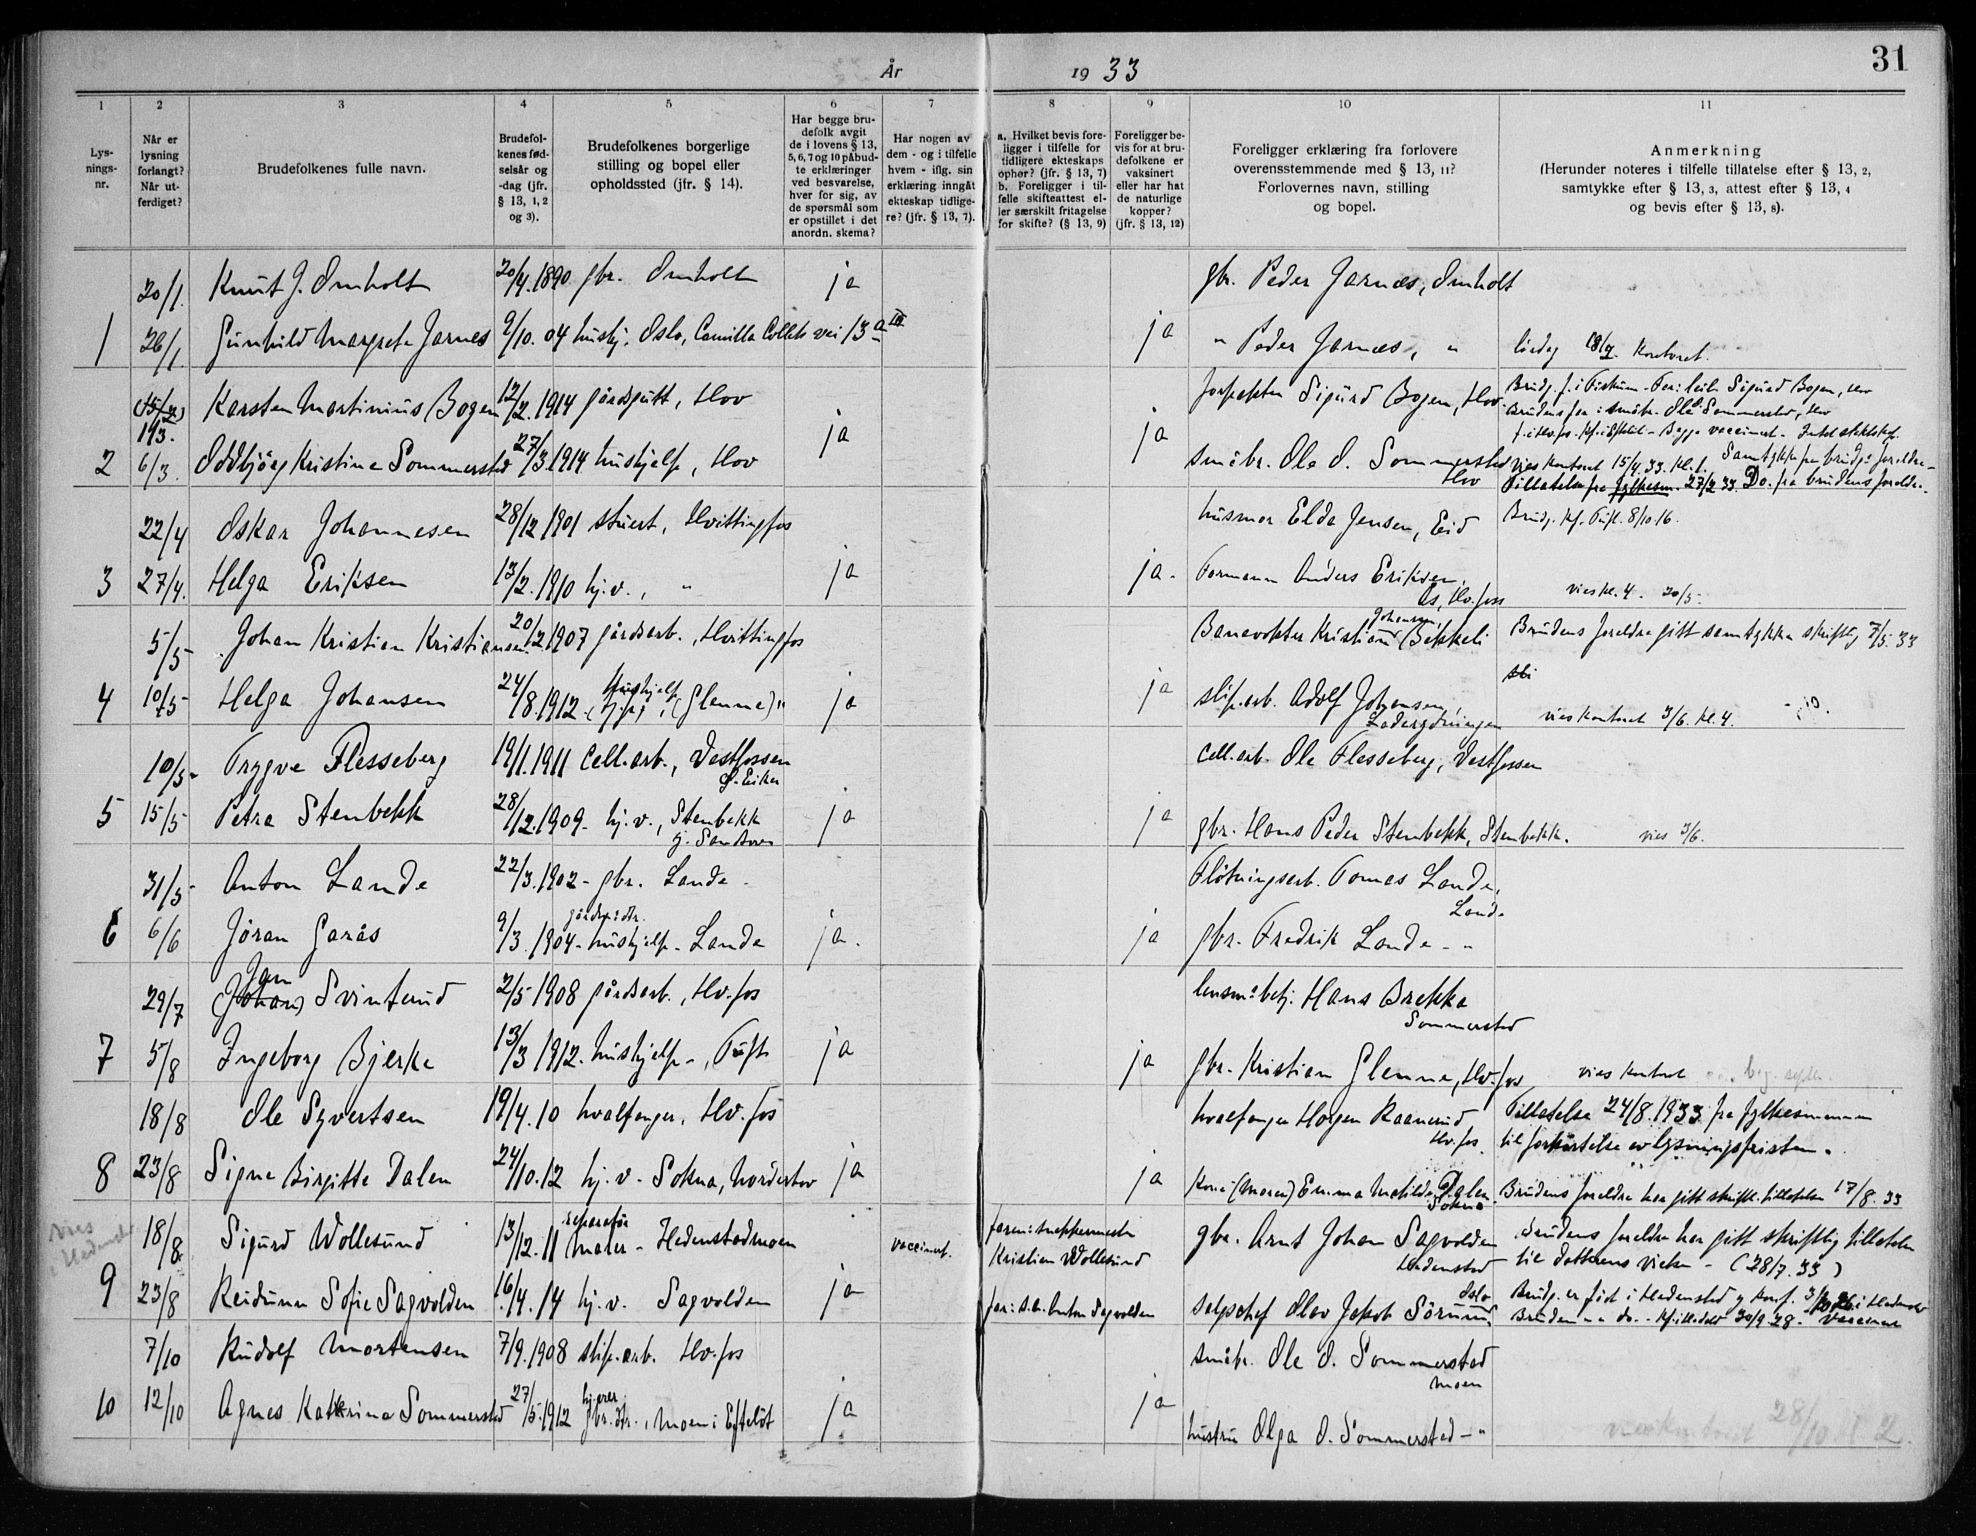 År 1933 31
1 2 3 4 5 6 7 8 9 10 11
Lys-
nings-
nr.
Når er
lysning
forlangt?
Når ut-
ferdiget?
Brudefolkenes fulle navn.
Brudefol-
kenes fød-
selsår og
-dag (jfr.
§ 13, 1, 2
og 3).
Brudefolkenes borgerlige
stilling og bopel eller
opholdssted (jfr. § 14).
Har begge bru-
defolk avgit
de i lovens § 13,
5, 6, 7 og 10 påbud-
te erklæringer
ved besvarelse,
hver for sig, av
de spørsmål som
er opstillet i det
anordn. skema?
Har nogen av
dem - og i tilfelle
hvem - iflg. sin
erklæring inngåt
ekteskap tidlige-
re? (jfr. § 13, 7).
a. Hvilket bevis fore-
ligger i tilfelle for
tidligere ekteskaps
ophør? (jfr. § 13, 7)
b. Foreligger i til-
felle skifteattest el-
ler særskilt fritagelse
for skifte? (§ 13, 9)
Foreligger be-
vis for at bru-
defolkene er
vaksinert
eller har hat
de naturlige
kopper?
(jfr. § 13, 12)
Foreligger erklæring fra forlovere
overensstemmende med § 13, 11?
Forlovernes navn, stilling
og bopel.
Anmerkning
(Herunder noteres i tilfelle tillatelse efter § 13, 2,
samtykke efter § 13, 3, attest efter § 13, 4
og bevis efter § 13, 8).
20/1. Knut J. Omholt 20/4.1890 gbr. Omholt ja gbr. Peder Jarnæs, Omholt
1 26/1. Gunhild Margrete Jarnes 9/10. 04 hushj. Oslo, Camilla Colletts vei 13 a III ja " Peder Jarnæs, " lördag 18/2. Kontoret.
(15/2) Karsten Martinius Bogen 12/2.1914 gårdsgutt, Hov forpakter Sigurd Bogen, Hov
1/3. ja ja
2 6/3. Oddbjörg Kristine Sommerstad 27/3.1914 hushjelp, Hov småbr. Ole O. Sommerstad Hov vies kontoret 15/4 33. kl. 1. Samtykke fra brudg.s foreldre -
Tillatelse fra fylkesm. 27/2 33. Do. fra brudens foreldre.
22/4 Oskar Johannesen 28/12 1901 stuert, Hvittingfos husmor Elda Jensen, Eid Brudg. kf. Tuft. 8/10 16.
3 27/4. Helga Eriksen 13/2.1910 hj.v., " ja ja. Formann Anders Eriksen, Ås, Hv.foss vies kl. 4. 20/5.
5/5 Johan Kristian Kristiansen 20/12 1907 gårdsarb., Hvittingfos Banevokter Kristian Johansen, Bekkeli Brudens foreldre gitt samtykke skriftlig 7/5. 33
4 10/5 Helga Johansen 24/8.1912 hushjelp (Glenne) " ja ja slip.arb. Adolf Johansen, vies kontoret 3/6. kl. 4.
10/5 Trygve Flesseberg 19/1.1911 Cell.arb., Vestfossen Ö. Eiker cell.arb. Ole Flesseberg, Vestfossen
5 15/5 Petra Stenbekk 28/12.1909- hj.v., Stenbekk ja ja gbr. Hans Peder Stenbekk, Stenbekk. vies 3/6.
31/5 Anton Lande 22/3.1902- gbr. Lande Flötningsarb. Tomas Lande, Lande
6 6/6 Jöran Garås 9/3.1904- hushjelp - Lande ja. ja gbr. Fredrik Lande - "
29/7 (Johan) Jan Svinterud 2/5 1908 gårdsarb., Hv.fos lensm.betj. Hans Brekke Sommerstad
7 5/8 Ingeborg Bjerke 13/3 1912. hushjelp -, Tuft ja ja gbr. Kristian Glenne, Hv.fos vies kontoret
18/8 Ole Syvertsen 19/4.10 hvalfanger, Hv.fos hvalfanger Holger Raanerud Hv.fos. Tillatelse 24/8.1933 fra fylkesmannen
til forkortelse av lysningsfristen.
8 23/8 Signe Birgitte Dalen 24/10.12 hj.v. Sokna, Norderhov ja ja Kone (Maren) Emma Matilde Dalen Sokna Brudens foreldre har gitt skriftl. tillatelse 17/8.33
18/8 Sigurd Wollesund 13/12.11 Maler - Hedenstadmoen vaccinert. faren: snekkermester
Kristian Wollesund gbr. Arnt Johan Sagvolden Hedenstad Brudens foreldre har gitt skriftlig tillatelse
til datterens vielse - (28/7.33)
9 23/8 Reidunn Sofie Sagvolden 16/4.14 hj.v. Sagvolden ja far: s.a. Anton Sagvolden salgschef Olav Jakob Sörum Oslo Brudg. er född i Hedenstad
Bruden " " do. - Kf. i Hedensd 30/9.28. Vaccinert
7/10 Rudolf Mortensen 7/9.1908 slip.arb. Hv.fos småbr. Ole O. Sommerstad Moen
10 12/10 Agnes Katrine Sommerstad 27/5.1912 gbr.dtr., Moen i Efteløt ja ja hustru Olga O. Sommerstad - " 28/10 kl 2.